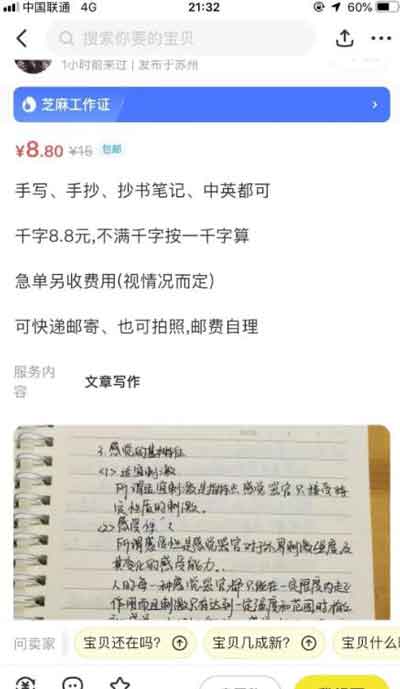 中国联通 4G 21:32 60%
搜索你要的宝贝
1小时前来过 | 发布于苏州
芝麻工作证
¥8.80 ¥15 包邮
手写、手抄、抄书笔记、中英都可
千字8.8元,不满千字按一千字算
急单另收费用(视情况而定)
可快递邮寄、也可拍照,邮费自理
服务内容 文章写作
3.感觉的基本特征
<1>适宜刺激
所谓适宜刺激是指特点感觉器官只接受特
定性质的刺激。
<2>感受性
所谓感受性是感觉器官对于外界刺激强度及
其变化的感受能力.
人的每一种感觉器官都只能在一定限度内起
作用而且刺激只有达到一定强度和范围时
问卖家 宝贝还在吗? 宝贝几成新? 宝贝什么